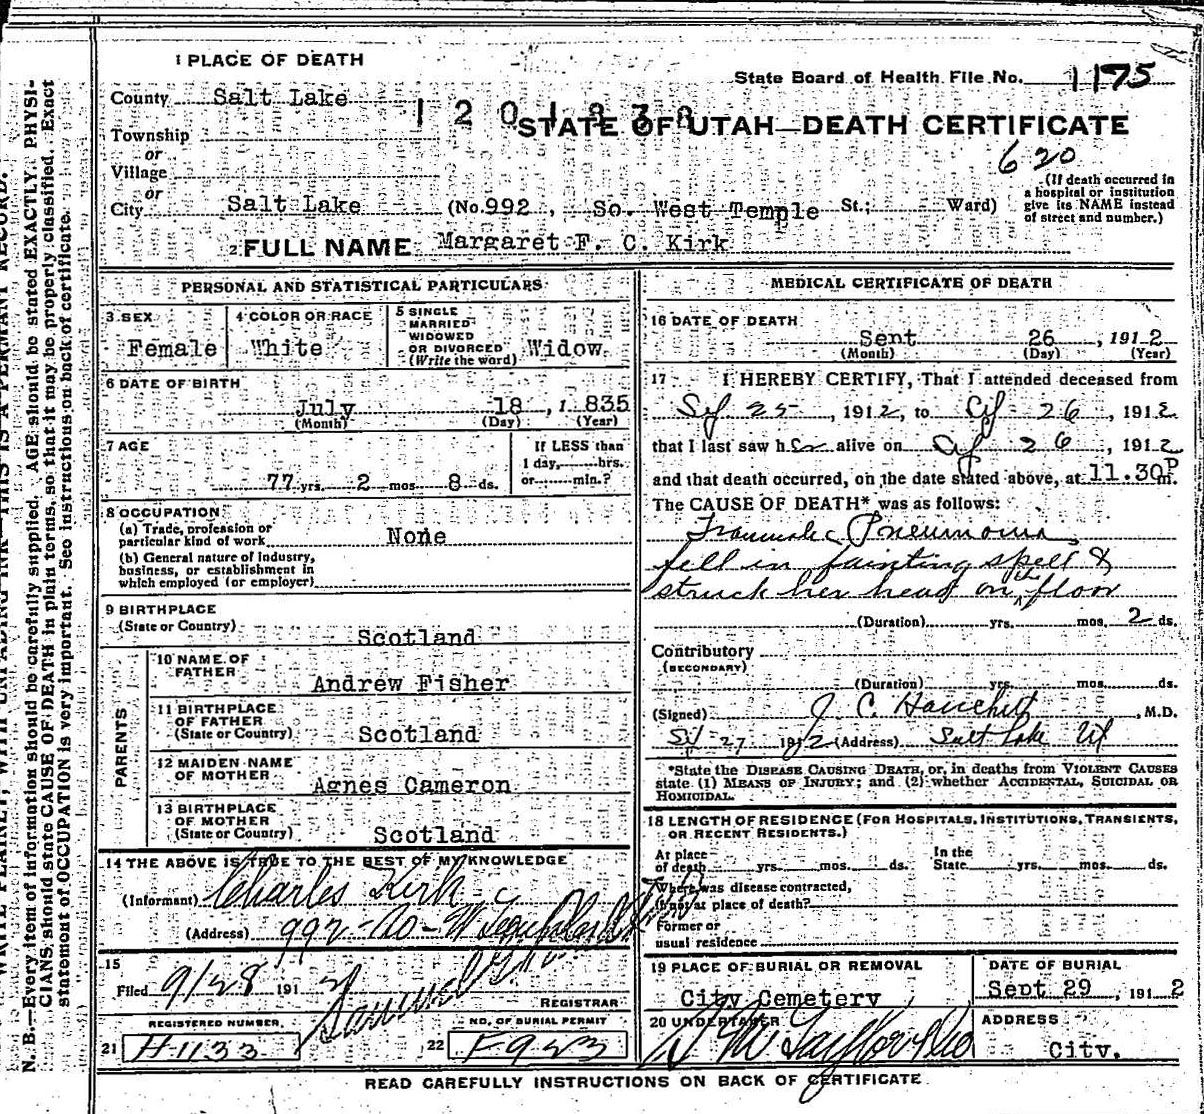 1 PLACE OF DEATH
State Board of Health File No. 1175
County Salt Lake
1201838
STATE OF UTAH—DEATH CERTIFICATE
Township
or
Village
620
or
City Salt Lake (No. 992, So. West Temple St.; Ward)
(If death occurred in
a hospital or institution
give its NAME instead
of street and number.)
2 FULL NAME Margaret F. C. Kirk
PERSONAL AND STATISTICAL PARTICULARS
3 SEX
Female
4 COLOR OR RACE
White
5 SINGLE
MARRIED
WIDOWED
OR DIVORCED
(Write the word) Widow
6 DATE OF BIRTH
July 18, 1835
(Month) (Day) (Year)
7 AGE
77 yrs. 2 mos 8 ds.
If LESS than
1 day, hrs.
or min.?
8 OCCUPATION
(a) Trade, profession or
particular kind of work None
(b) General nature of industry,
business, or establishment in
which employed (or employer)
9 BIRTHPLACE
(State or Country)
Scotland
PARENTS
10 NAME OF
FATHER
Andrew Fisher
11 BIRTHPLACE
OF FATHER
(State or Country) Scotland
12 MAIDEN NAME
OF MOTHER
Agnes Cameron
13 BIRTHPLACE
OF MOTHER
(State or Country) Scotland
14 THE ABOVE IS TRUE TO THE BEST OF MY KNOWLEDGE
(Informant) Charles Kirk
(Address) 992
15
Filed 9/28 191 2
REGISTRAR
REGISTERED NUMBER
21 H1133
NO. OF BURIAL PERMIT
22 F923
MEDICAL CERTIFICATE OF DEATH
16 DATE OF DEATH
Sept 26, 1912
(Month) (Day) (Year)
17 I HEREBY CERTIFY, That I attended deceased from
25, 1912, to 26, 1912
that I last saw her alive on 26, 1912
and that death occurred, on the date stated above, at 11.30 P m.
The CAUSE OF DEATH* was as follows:
Traumatic Pneumonia
fell in fainting spell &
struck her head on the floor
(Duration) yrs. mos. 2 ds.
Contributory
(SECONDARY)
(Duration) yrs. mos. ds.
(Signed) J. C. Hanchett, M.D.
27 1912 (Address) Salt Lake Ut
*State the DISEASE CAUSING DEATH, or, in deaths from VIOLENT CAUSES
state (1) MEANS OF INJURY; and (2) whether ACCIDENTAL, SUICIDAL OR
HOMICIDAL.
18 LENGTH OF RESIDENCE (FOR HOSPITALS, INSTITUTIONS, TRANSIENTS,
OR RECENT RESIDENTS.)
At place
of death yrs. mos. ds.
In the
State yrs. mos. ds.
Where was disease contracted,
if not at place of death?
Former or
usual residence
19 PLACE OF BURIAL OR REMOVAL
City Cemetery
DATE OF BURIAL
Sept 29, 1912
20 UNDERTAKER
Taylor & Co
ADDRESS
City.
READ CAREFULLY INSTRUCTIONS ON BACK OF CERTIFICATE
WRITE PLAINLY, WITH UNFADING INK—THIS IS A PERMANENT RECORD.
N. B.—Every item of information should be carefully supplied. AGE should be stated EXACTLY. PHYSI-
CIANS should state CAUSE OF DEATH in plain terms, so that it may be properly classified. Exact
statement of OCCUPATION is very important. See instructions on back of certificate.